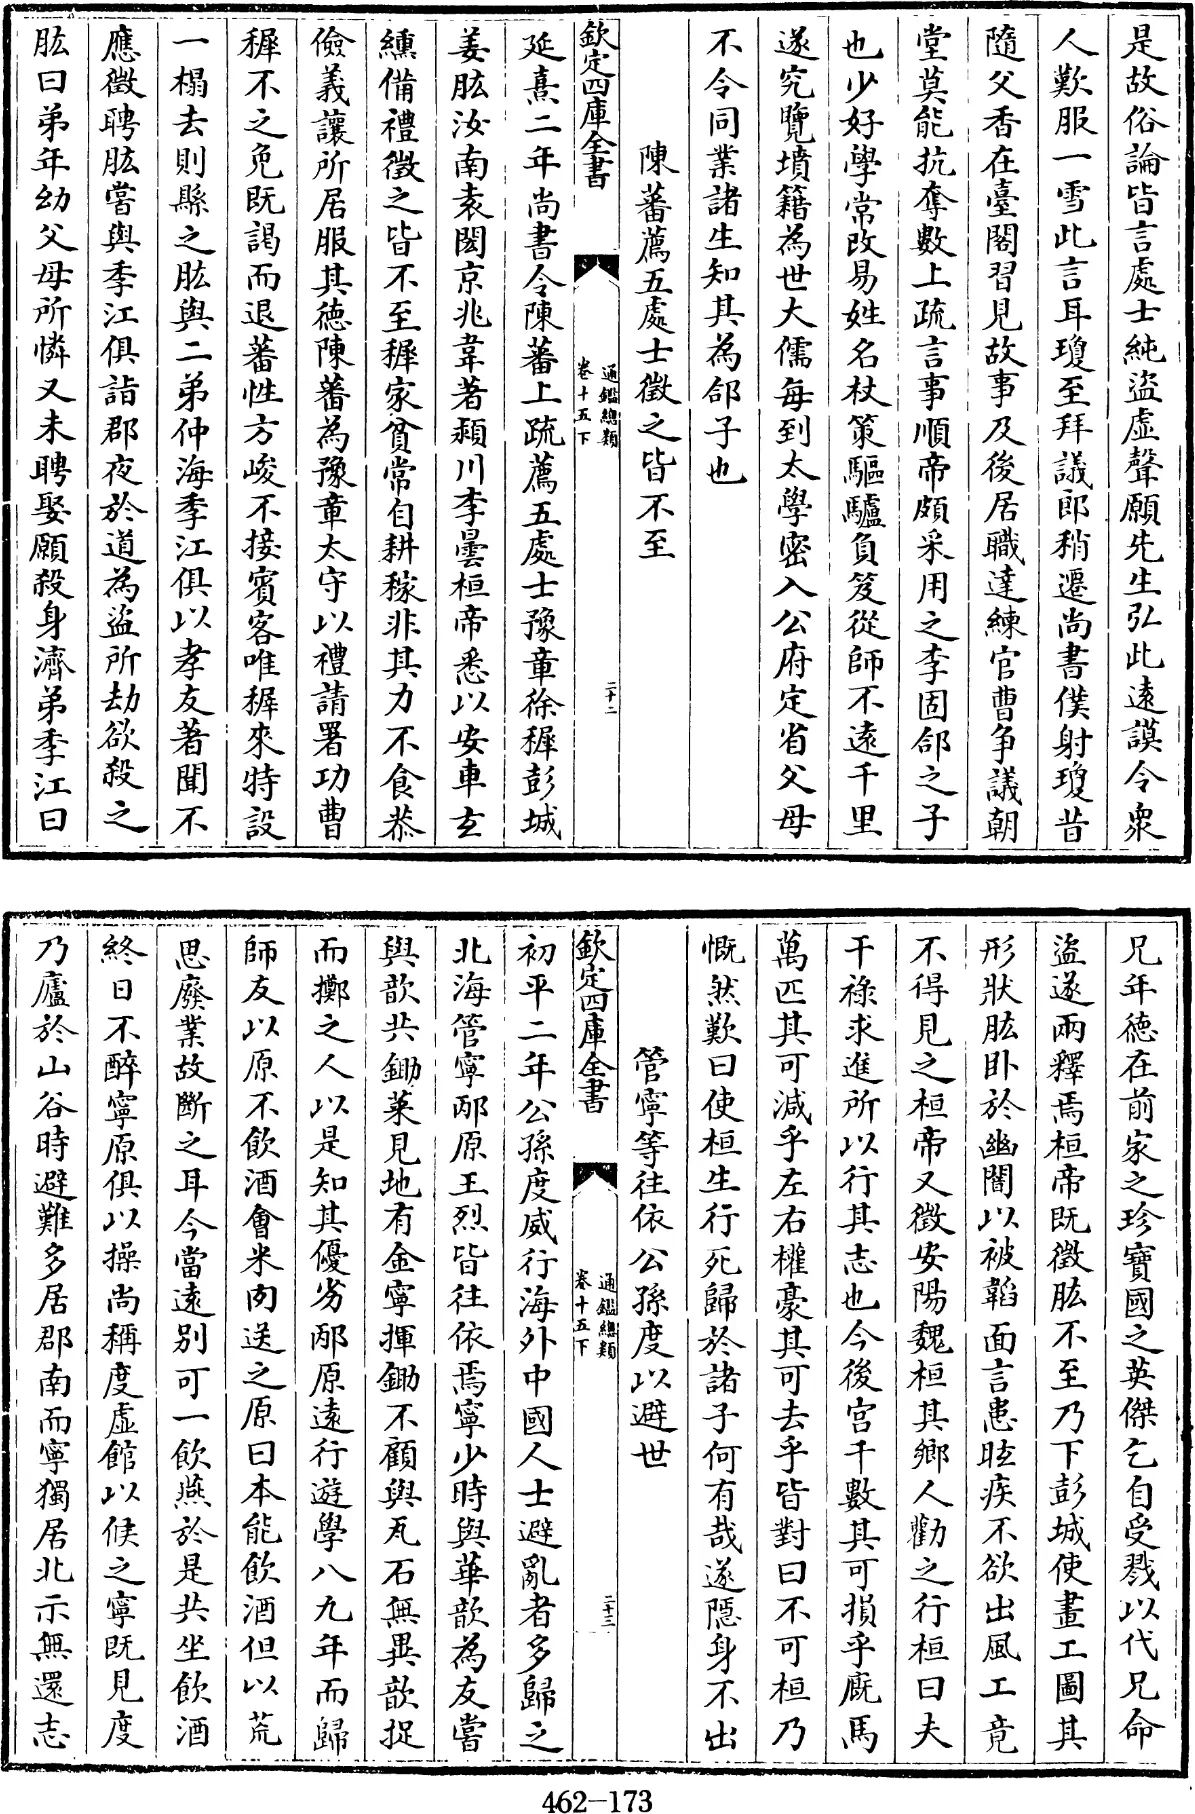 是故俗論皆言處士純盜虛聲願先生弘此遠謨令衆
人歎服一雪此言耳瓊至拜議郎稍遷尚書僕射瓊昔
隨父香在臺閣習見故事及後居職達練官曹争議朝
堂莫能抗奪數上疏言事順帝頗采用之李固郃之子
也少好學常改易姓名杖策驅驢負笈從師不遠千里
遂究覽墳籍為世大儒每到太學密入公府定省父母
不令同業諸生知其為郃子也
陳蕃薦五處士徵之皆不至
欽定四庫全書
通鑑總類
卷十五下
二十二
延熹二年尚書令陳蕃上疏薦五處士豫章徐穉彭城
姜肱汝南袁閎京兆韋著潁川李曇桓帝悉以安車玄
纁備禮徵之皆不至穉家貧常自耕稼非其力不食恭
儉義讓所居服其德陳蕃為豫章太守以禮請署功曹
穉不之免既謁而退蕃性方峻不接賓客唯穉來特設
一榻去則縣之肱與二弟仲海季江俱以孝友著聞不
應徵聘肱嘗與季江俱詣郡夜於道為盜所劫欲殺之
肱曰弟年幼父母所憐又未聘娶願殺身濟弟季江曰
兄年德在前家之珍寶國之英傑乞自受戮以代兄命
盜遂兩釋焉桓帝既徵肱不至乃下彭城使畫工圖其
形狀肱卧於幽闇以被韜面言患眩疾不欲出風工竟
不得見之桓帝又徵安陽魏桓其鄉人勸之行桓曰夫
干祿求進所以行其志也今後宮千數其可損乎廐馬
萬匹其可減乎左右權豪其可去乎皆對曰不可桓乃
慨然歎曰使桓生行死歸於諸子何有哉遂隱身不出
管寧等往依公孫度以避世
欽定四庫全書
通鑑總類
卷十五下
二十三
初平二年公孫度威行海外中國人士避亂者多歸之
北海管寧邴原王烈皆往依焉寧少時與華歆為友嘗
與歆共鋤菜見地有金寧揮鋤不顧與瓦石無異歆捉
而擲之人以是知其優劣邴原遠行遊學八九年而歸
師友以原不飲酒會米肉送之原曰本能飲酒但以荒
思廢業故斷之耳今當遠别可一飲燕於是共坐飲酒
終日不醉寧原俱以操尚稱度虛館以候之寧既見度
乃廬於山谷時避難多居郡南而寧獨居北示無還志
462-173